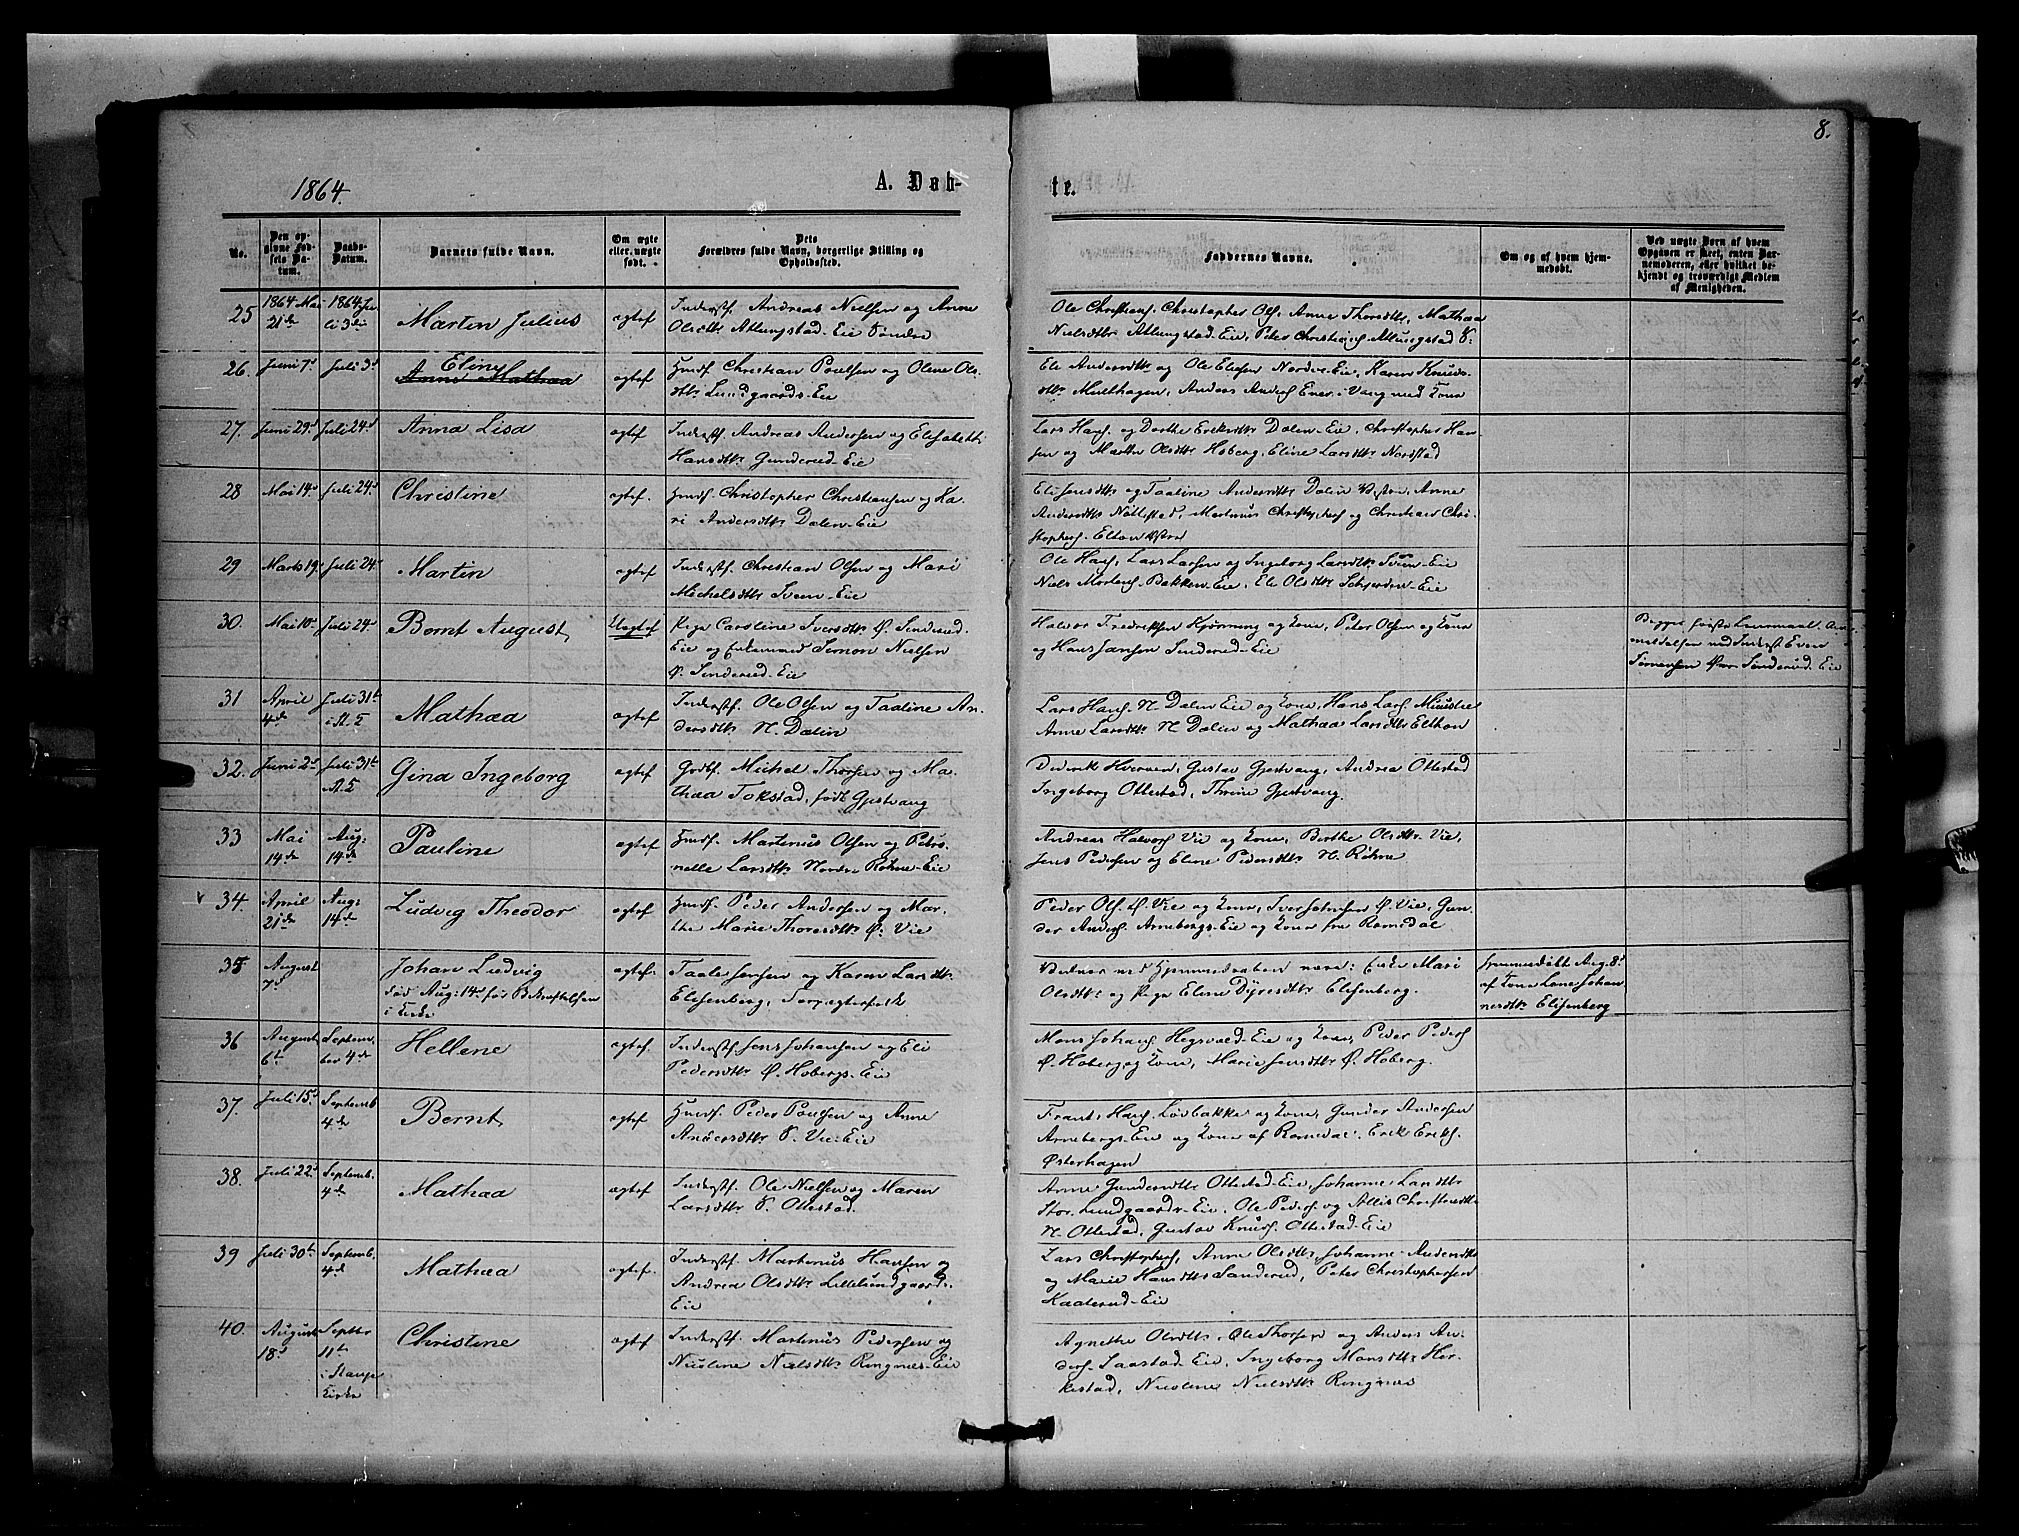 8.
1864.
A. Døb-
te.
No.
Den opgivne Fødsets Datum.
Daabs-Datum.
Barnets fulde Navn.
Om ægte eller uægte født.
Dets Forældres fulde Navn, borgerlige Stilling og Opholdssted.
Faddernes Navne.
Om og af hvem hjemmedøbt.
Ved uægte Børn af hvem Opgaven er skeet, enten Barnemoderen, eller hvilket bekjendt og troværdigt Medlem af Menigheden.
25 1864 Mai 21de 1864 Juli 3die Martin Julius ægtef Inderstf. Andreas Nielsen og Anne
Olsdttr Atlungstad-Eie Søndre
Ole Christians. Christopher Ols. Anne Thorsdttr, Mathea
Nielsdttr Atlungstad-Eie, Peter Christians. Atlungstad S.
26. Juni 7d Juli 3d Eline
Anne Mathea ægtef Husmf. Christian Poulsen og Oline Ols-
dttr Lundgaards-Eie
Eli Andersdttr og Ole Elisen Nordvi-Eie, Karen Knuds-
dttr Meelhagen, Anders Anders. Ener i Vang med Kone
27. Juni 29d Juli 24d Anna Lisa ægtef Inderstf. Andreas Andersen og Elisabeth
Hansdttr Gunderud-Eie
Lars Hans. og Dorthe Eriksdttr Dælen-Eie, Christopher Han-
sen og Marthe Olsdttr Hoberg, Eline Larsdttr Nordstad
28 Mai 14d Juli 24d Christine ægtef. Husmf. Christopher Christiansen og Ka-
ri Andersdttr Dælen-Eie
Eli Jensdttr og Taaline Andersdttr Dælin Østre, Anne
Andersdttr Nøttestad, Martinus Christophers. og Christian Chri-
stophers. Elton Østre
29 Marts 19. Juli 24d Martin ægtef Inderstf. Christian Olsen og Mari
Michelsdttr Sveen-Eie
Ole Hans. Lars Larsen og Ingeborg Larsdttr Sveen-Eie
Niels Mortens. Bakken-Eie, Eli Olsdttr Skjerden-Eie
30. Mai 10d Juli 24d Bernt August Uægtef Pige Caroline Iversdttr Ø. Sinderud-
Eie og Enkemand Simon Nielsen
Ø. Sinderud-Eie
Halvor Fredriksen Hjørning og Kone, Peter Olsen og Kone
og Hans Jansen Sinderud-Eie
Begges første Leiermaal. An-
meldelsen ved Inderst Even
Simensen Sinderud-Eie
31 April 4de Juli 31te i St. K Mathea ægtef Inderstf. Ole Olsen og Taaline An-
dersdttr N. Dælin
Lars Hans. N. Dælin-Eie og Kone, Hans Lars.
Anne Larsdttr N. Dælin og Mathea Larsdttr Elthon
32. Juni 2d Juli 31te St. K Gina Ingeborg ægtef Godbf. Michel Thorsen og Ma-
thea Tokstad, født Gjestvang
Diderik Hverven, Gustav Gjestvang, Andrea Ottestad
Ingeborg Ottestad, Thrine Gjestvang.
33 Mai 14de Aug: 14de Pauline ægtef Husmf. Martinus Olsen og Petro-
nelle Larsdttr Nordre Røhne-Eie
Andreas Halvors. Vie og Kone, Berthe Olsdttr Vie,
Jens Pedersen og Eline Pedersdttr N. Røhne
34. April 21de Aug: 14de Ludvig Theodor ægtef Husmf. Peder Andersen og Mar-
the Marie Thoresdttr Ø. Vie
Peder Ols. Ø. Vie og Kone, Iver Johnsen Ø. Vie, Gun-
der Anders. Arnebergs-Eie og Kone fra Romedal
35 August 7d Johan Ludvig
død Aug: 14d før Bekræftelsen
i Kirke ægtef. Taale Jensen og Karen Larsdttr
Elisenberg,
Vidner ved Hjemmedaaben vare: Enke Mari
Olsdttr og Pige Eline Dyresdttr Elisenberg.
Hjemmedøbt Aug. 8d
af Kone Lene Johan-
nesdttr Elisenberg
36 August 6te September 4de Hellene ægtef. Inderstf. Jens Johansen og Eli
Pedersdttr Ø. Hobergs-Eie
Mons Johans. Hegsvold-Eie og Kone, Peder Peders.
Ø. Hoberg og Kone, Marie Jensdttr Ø. Hoberg.
37. Juli 15d Septemb. 4de Bernt ægtef Husmf. Peder Poulsen og Anne
Andersdttr S. Vie-Eie
Frants Hans. Løvbakke og Kone, Gunder Andersen
Arnebergs-Eie og Kone af Romedal, Erik Eriks.
Østerhagen
38. Juli 22d Septemb. 4de Mathea ægtef Inderstf. Ole Nielsen og Maren
Larsdttr S. Ottestad.
Anne Gundersdttr Ottestad-Eie, Johanne Larsdttr
Stor-Lundgaards-Eie, Ole Peders. og Allis Christensdttr
N. Ottestad, Gustav Knuds. Ottestad-Eie
39 Juli 30te Septemb. 4de Mathea ægtef. Inderstf. Martinus Hansen og
Andrea Olsdttr Lillelundgaard-
Eie
Lars Christophers, Anne Olsdttr Johanne Andersdttr
og Marie Hansdttr Sanderud, Peter Christophersen
Kaaterud-Eie
40. August 18d Septbr 11te i Stange Kirke Christine ægtef Inderstf. Martinus Pedersen og
Nicoline Nielsdttr Ringnes-Eie
Agnethe Olsdttr, Ole Thorsen og Anders An-
ders. Saastad-Eie, Ingeborg Monsdttr Her-
kestad, Nicoline Nielsdttr Ringnæs